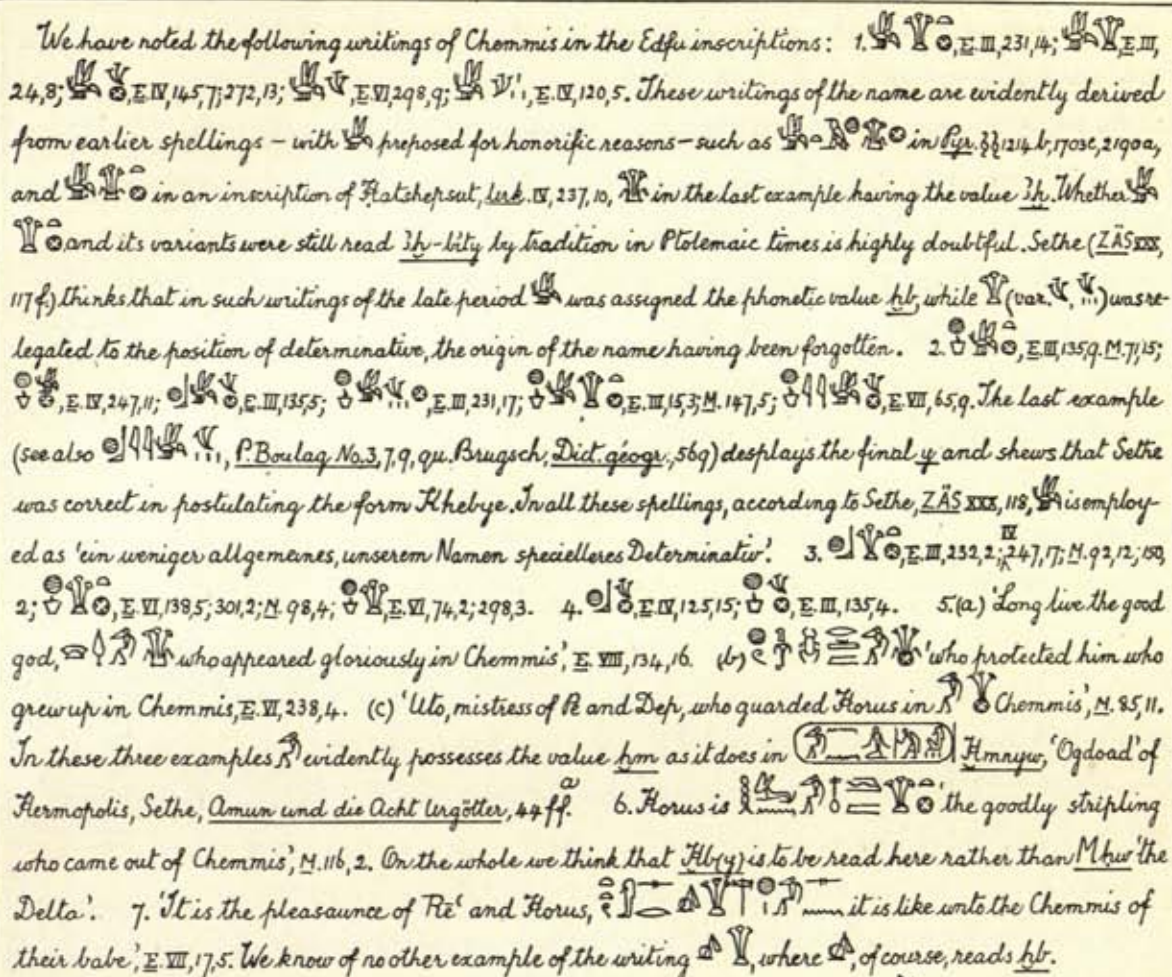 We have noted the following writings of Chemmis in the Edfu inscriptions: 1. , E. III, 231, 14; , E. III,
24, 8; , E. IV, 145, 7; 272, 13; , E. VI, 298, 9; , E. IV, 120, 5. These writings of the name are evidently derived
from earlier spellings – with preposed for honorific reasons – such as in Pyr. §§ 1214 b, 1703 c, 2190 a,
and in an inscription of Hatshepsut, Urk. IV, 237, 10, in the last example having the value ꜣḫ. Whether
and its variants were still read ꜣḫ-bỉty by tradition in Ptolemaic times is highly doubtful. Sethe (ZÄS XXX,
117 f.) thinks that in such writings of the late period was assigned the phonetic value ḫb, while (var. , ) was re-
legated to the position of determinative, the origin of the name having been forgotten. 2. , E. III, 135, 9. M. 71, 15;
, E. IV, 247, 11; , E. III, 135, 5; , E. III, 231, 17; , E. III, 15, 3; M. 147, 5; , E. VII, 65, 9. The last example
(see also , P. Boulaq No. 3, 7, 9, qu. Brugsch, Dict. géogr., 569) desplays the final y and shews that Sethe
was correct in postulating the form Khebye. In all these spellings, according to Sethe, ZÄS XXX, 118, is employ-
ed as 'ein weniger allgemeines, unserem Namen specielleres Determinativ'. 3. , E. III, 232, 2; IV 247, 17; M. 92, 12; 150,
2; , E. VI, 138, 5; 301, 2; M. 98, 4; , E. VI, 74, 2; 298, 3. 4. , E. IV, 125, 15; , E. III, 135, 4. 5. (a) 'Long live the good
god, who appeared gloriously in Chemmis', E. VIII, 134, 16. (b) 'who protected him who
grew up in Chemmis, E. VI, 238, 4. (c) 'Uto, mistress of Pe and Dep, who guarded Horus in Chemmis', M. 85, 11.
In these three examples evidently possesses the value ḫm as it does in Ḫmnyw, 'Ogdoad' of
Hermopolis, Sethe, Amun und die Acht Urgötter, 44 ff. a 6. Horus is 'the goodly stripling
who came out of Chemmis', M. 116, 2. On the whole we think that Ḫb(y) is to be read here rather than Mḥw 'the
Delta'. 7. 'It is the pleasaunce of Rēʿ and Horus, it is like unto the Chemmis of
their babe', E. VII, 17, 5. We know of no other example of the writing , where , of course, reads ḫb.